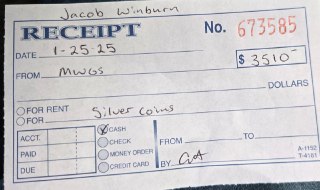 Jacob Winburn
RECEIPT No. 673585
DATE 1-25-25
$ 3510
FROM MWGS
DOLLARS
FOR RENT
FOR Silver Coins
ACCT. CASH
CHECK FROM TO
PAID MONEY ORDER A-1152
DUE CREDIT CARD BY T-4161